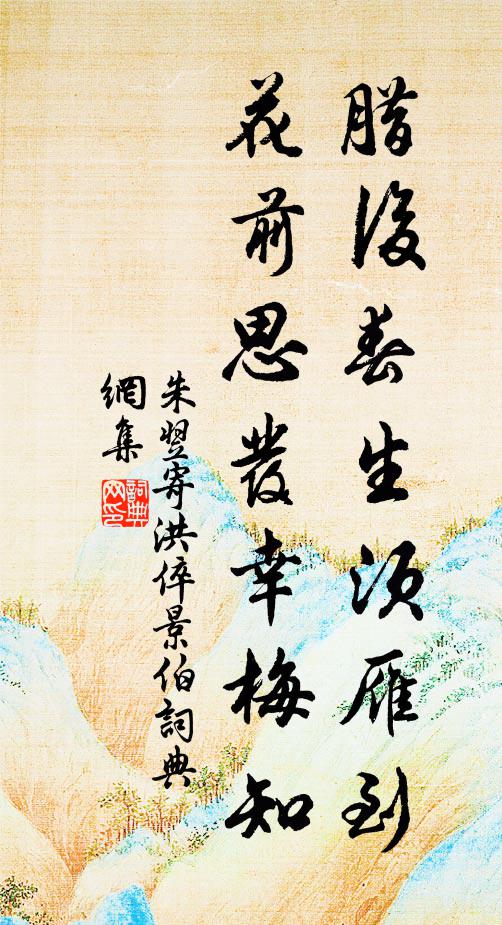 腊後春生須雁到
花前思發幸梅知
朱翌寄洪倅景伯詞典
網集
詞典
网印